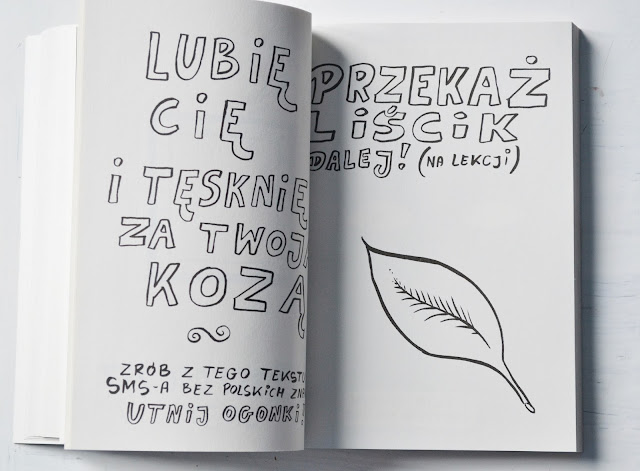 LUBIĘ
CIĘ
i TĘSKNIĘ
ZA TWOJĄ
KOZĄ
ZRÓB Z TEGO TEKSTU
SMS-A BEZ POLSKICH
UTNIJ OGONKI!
PRZEKAŻ
LiŚCiK
DALEJ! (NA LEKCJi)